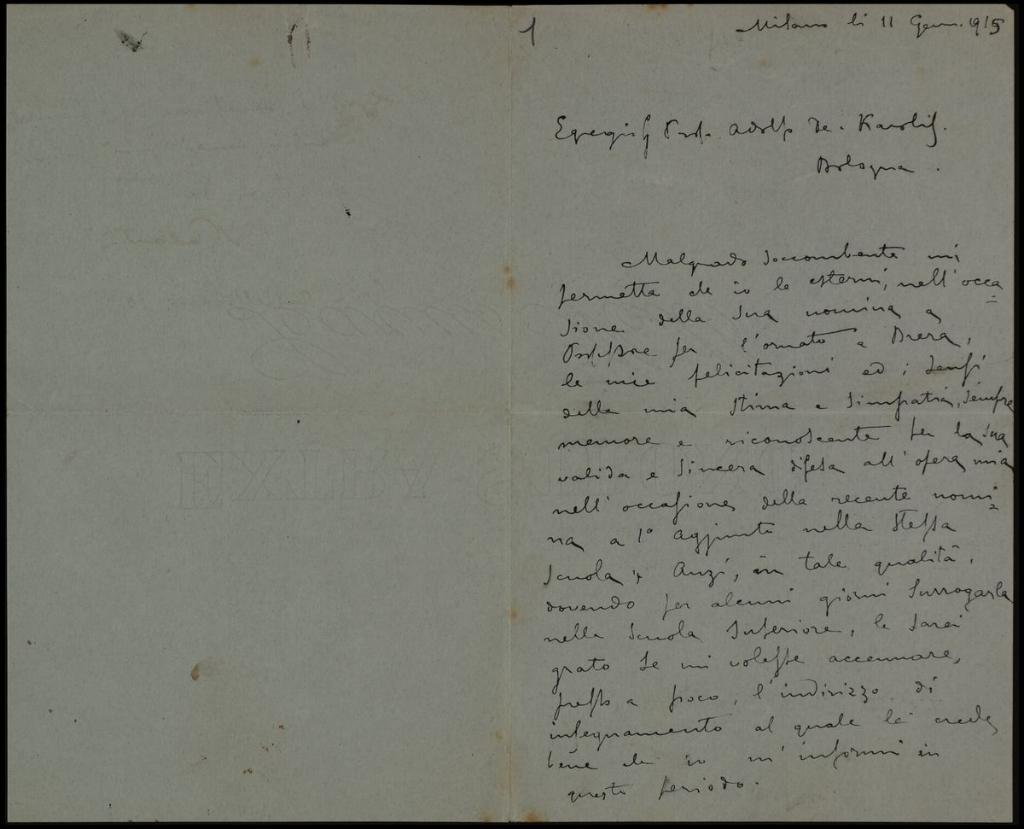 1
Milano li 11 Genn. 1915
Egregio Sig Prof. Adolfo De. Karolis.
Bologna.
Malgrado soccombente mi
permetta che io le esterni, nell'occa
sione della Sua nomina a
Professore per l'ornato a Brera,
le mie felicitazioni ed i sensi
della mia stima e simpatia, sempre
memore e riconoscente per la sua
valida e sincera difesa all'opera mia
nell'occasione della recente nomi
na a 1° Aggiunto nella stessa
Scuola. Anzi, in tale qualità,
dovendo per alcuni giorni surrogarla
nella Scuola Superiore, le sarei
grato se mi volesse accennare,
presso a poco, l'indirizzo di
insegnamento al quale Le crede
bene che io m'informi in
questo periodo.